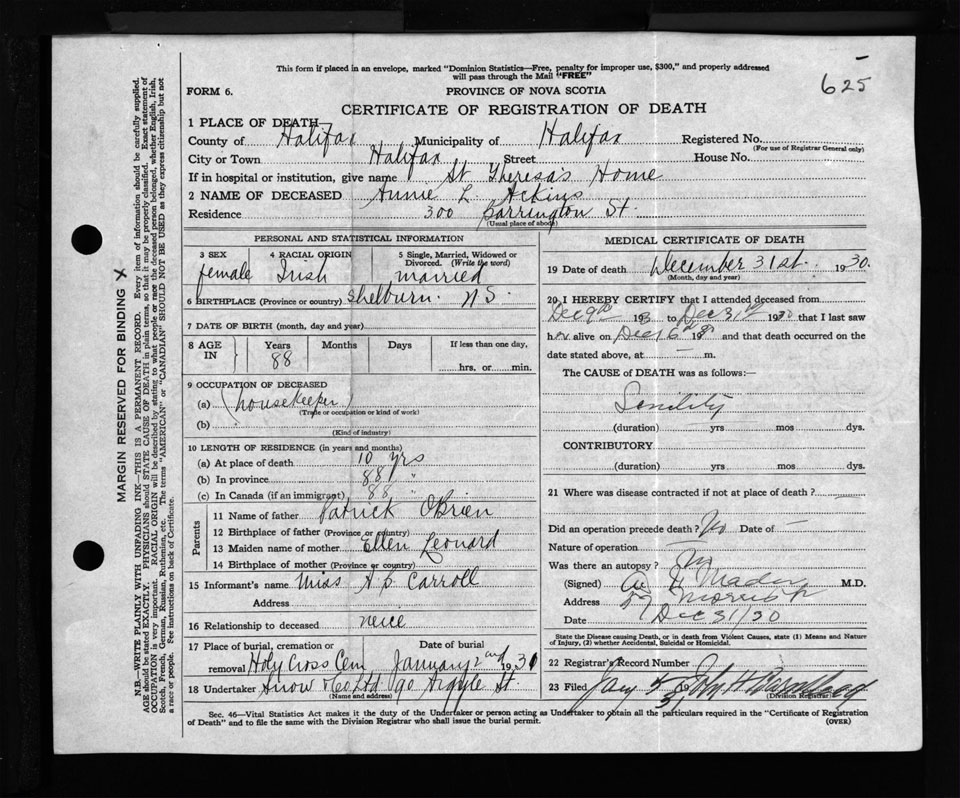 This form if placed in an envelope, marked "Dominion Statistics—Free, penalty for improper use, $300," and properly addressed
will pass through the Mail "FREE"
625
FORM 6.
PROVINCE OF NOVA SCOTIA
CERTIFICATE OF REGISTRATION OF DEATH
1 PLACE OF DEATH
County of Halifax Municipality of Halifax Registered No.
(For use of Registrar General only)
City or Town Halifax Street House No.
If in hospital or institution, give name St Theresa's Home
2 NAME OF DECEASED Annie L. Ackins
Residence 300 Barrington St.
(Usual place of abode)
PERSONAL AND STATISTICAL INFORMATION
3 SEX 4 RACIAL ORIGIN 5 Single, Married, Widowed or
Divorced. (Write the word)
female Irish married
6 BIRTHPLACE (Province or country) Shelburn. N S.
7 DATE OF BIRTH (month, day and year)
8 AGE IN Years Months Days If less than one day,
88 hrs. or min.
9 OCCUPATION OF DECEASED
(a) (housekeeper)
(Trade or occupation or kind of work)
(b)
(Kind of industry)
10 LENGTH OF RESIDENCE (in years and months)
(a) At place of death 10 yrs
(b) In province 88 "
(c) In Canada (if an immigrant) 88 "
Parents
11 Name of father Patrick O'Brien
12 Birthplace of father (Province or country)
13 Maiden name of mother Ellen Leonard
14 Birthplace of mother (Province or country)
15 Informant's name Miss A P Carroll
Address
16 Relationship to deceased neice
17 Place of burial, cremation or Date of burial
removal Holy Cross Cem January 2nd 1931
18 Undertaker Snow & Co Ltd 90 Argyle St.
(Name and address)
MEDICAL CERTIFICATE OF DEATH
19 Date of death December 31st. 1930.
(Month, day and year)
20 I HEREBY CERTIFY that I attended deceased from
Dec 9th 193 to Dec 31st 1930 that I last saw
her alive on Dec 16th 19 and that death occurred on the
date stated above, at — m.
The CAUSE of DEATH was as follows:—
Senility
(duration) yrs mos dys.
CONTRIBUTORY
(duration) yrs mos dys.
21 Where was disease contracted if not at place of death?
Did an operation precede death? No Date of —
Nature of operation
Was there an autopsy?
(Signed) H Mader M.D.
Address 57 Morris St
Date Dec 31/30
State the Disease causing Death, or in death from Violent Causes, state (1) Means and Nature
of Injury, (2) whether Accidental, Suicidal or Homicidal.
22 Registrar's Record Number
23 Filed Jany 5 1931 John H
(Division Registrar)
Sec. 46—Vital Statistics Act makes it the duty of the Undertaker or person acting as Undertaker to obtain all the particulars required in the "Certificate of Registration
of Death" and to file the same with the Division Registrar who shall issue the burial permit.
(OVER)
MARGIN RESERVED FOR BINDING X
N.B.—WRITE PLAINLY WITH UNFADING INK—THIS IS A PERMANENT RECORD. Every item of information should be carefully supplied.
AGE should be stated EXACTLY. PHYSICIANS should STATE CAUSE OF DEATH in plain terms, so that it may be properly classified. Exact statement of
OCCUPATION is very important. RACIAL ORIGIN will be described by stating to what people or race the deceased person belonged, whether English, Irish,
Scotch, French, German, Russian, Ruthenian, etc. The terms "AMERICAN" or "CANADIAN" SHOULD NOT BE USED as they express citizenship but not
a race or people. See instructions on back of Certificate.